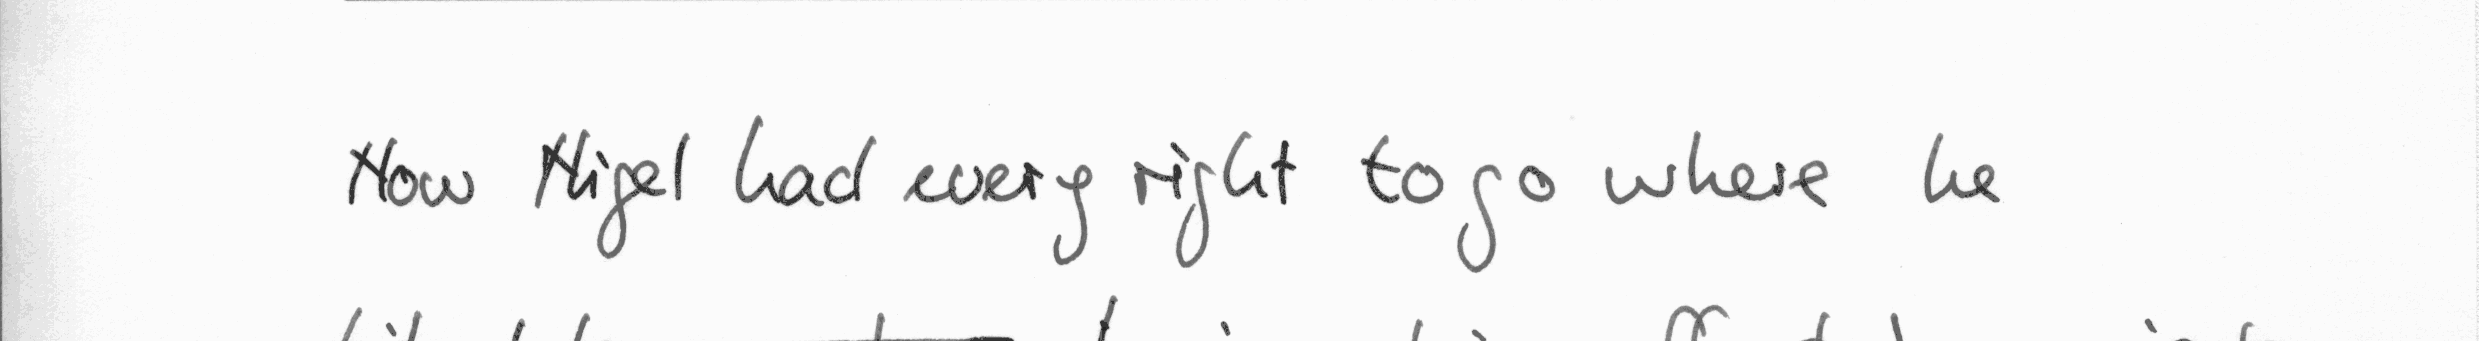 Now Nigel had every right to go where he